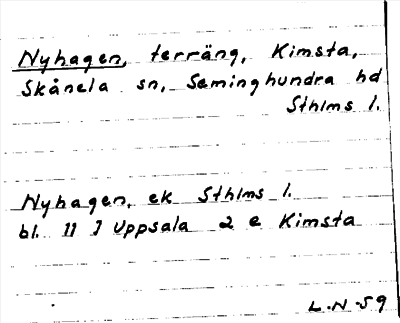 Nyhagen, terräng, Kimsta,
Skånela sn, Seminghundra hd
Sthlms l.
Nyhagen, ek Sthlms l.
bl. 11 I Uppsala 2 e Kimsta
L.N-59